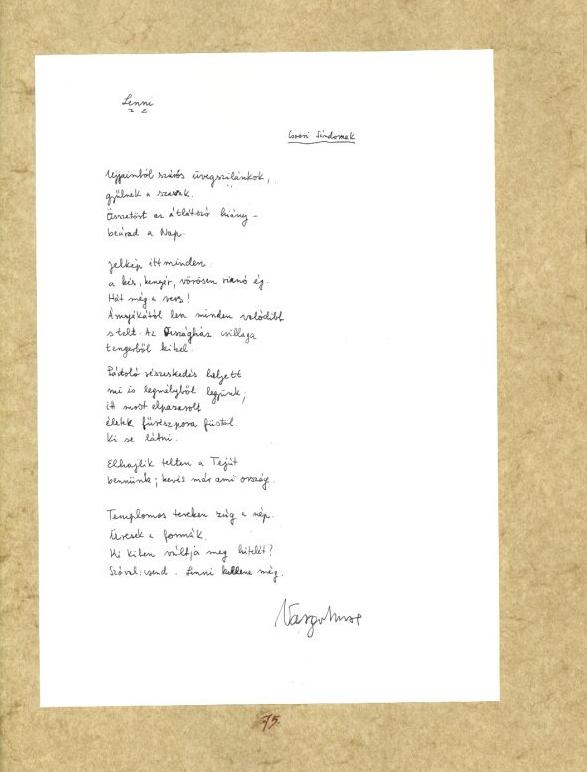 Lenni
Csoóri Sándornak
Ujjainkból szúrós üvegszilánkok,
gyűlnek a szavak.
Összetört az átlátszó hiány –
beárad a Nap.
Jelkép itt minden:
a kés, kenyér, vörösen izzó ég.
Hát még a vers!
Árnyékától len minden valódibb
s telt. Az Országház csillaga
tengerből kikel.
Pártoló részeskedés helyett
mi is legmélyből legyünk,
itt most elpazarolt
életek fűrészpora füstöl.
Ki se látni.
Elhajlik telten a Tejút
bennünk; kevés már ami ország.
Templomos tereken zúg a nép.
Üresek a formák.
Ki kiben váltja meg hitelét?
Szóval: csend. Lenni kellene még.
75.